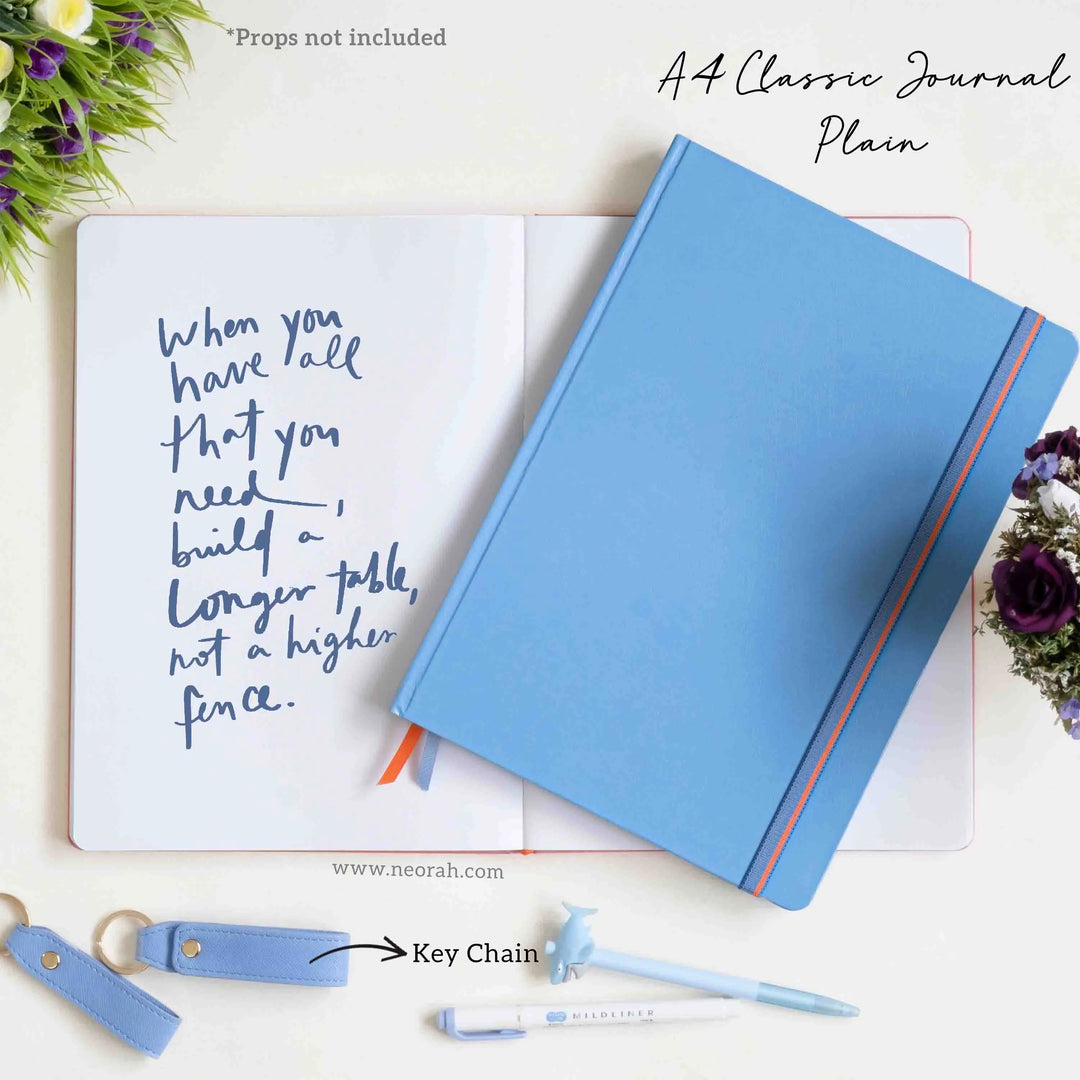 *Props not included
A4 Classic Journal
Plain
When you
have all
that you
need,
build a
longer table,
not a higher
fence.
www.neorah.com
Key Chain
MILDLINER